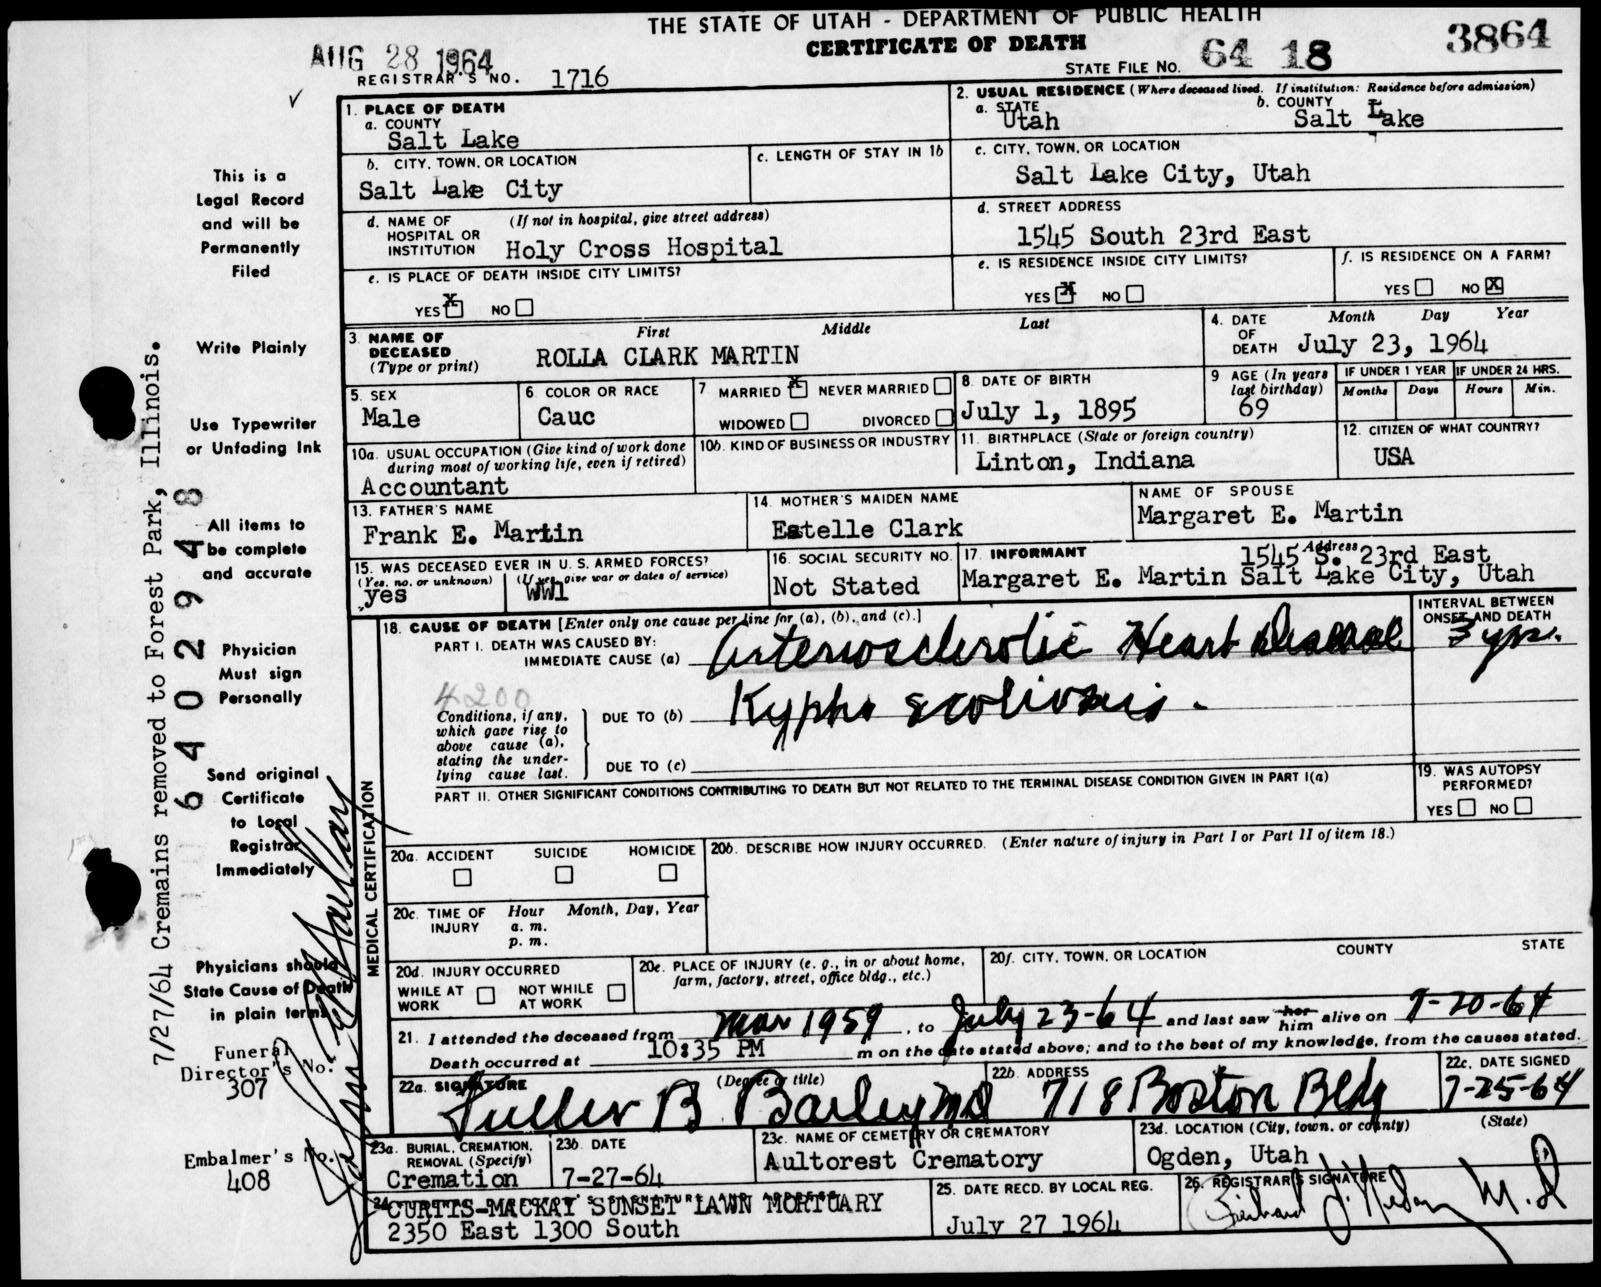 THE STATE OF UTAH - DEPARTMENT OF PUBLIC HEALTH
CERTIFICATE OF DEATH
AUG 28 1964
REGISTRAR'S NO. 1716
STATE FILE NO. 64 18 3864
1. PLACE OF DEATH
a. COUNTY
Salt Lake
2. USUAL RESIDENCE (Where deceased lived. If institution: Residence before admission)
a. STATE
Utah
b. COUNTY
Salt Lake
b. CITY, TOWN, OR LOCATION
Salt Lake City
c. LENGTH OF STAY IN 1b
c. CITY, TOWN, OR LOCATION
Salt Lake City, Utah
d. NAME OF HOSPITAL OR INSTITUTION
(If not in hospital, give street address)
Holy Cross Hospital
d. STREET ADDRESS
1545 South 23rd East
e. IS PLACE OF DEATH INSIDE CITY LIMITS?
YES X NO
e. IS RESIDENCE INSIDE CITY LIMITS?
YES X NO
f. IS RESIDENCE ON A FARM?
YES NO X
3. NAME OF DECEASED (Type or print)
First Middle Last
ROLLA CLARK MARTIN
4. DATE OF DEATH
Month Day Year
July 23, 1964
5. SEX
Male
6. COLOR OR RACE
Cauc
7 MARRIED X NEVER MARRIED
WIDOWED DIVORCED
8. DATE OF BIRTH
July 1, 1895
9 AGE (In years last birthday)
69
IF UNDER 1 YEAR
Months Days
IF UNDER 24 HRS.
Hours Min.
10a. USUAL OCCUPATION (Give kind of work done during most of working life, even if retired)
Accountant
10b. KIND OF BUSINESS OR INDUSTRY
11. BIRTHPLACE (State or foreign country)
Linton, Indiana
12. CITIZEN OF WHAT COUNTRY?
USA
13. FATHER'S NAME
Frank E. Martin
14. MOTHER'S MAIDEN NAME
Estelle Clark
NAME OF SPOUSE
Margaret E. Martin
15. WAS DECEASED EVER IN U. S. ARMED FORCES?
(Yes, no, or unknown) (If yes, give war or dates of service)
yes WW1
16. SOCIAL SECURITY NO.
Not Stated
17. INFORMANT Address
Margaret E. Martin 1545 S. 23rd East
Salt Lake City, Utah
MEDICAL CERTIFICATION
18. CAUSE OF DEATH [Enter only one cause per line for (a), (b), and (c).]
INTERVAL BETWEEN ONSET AND DEATH
PART I. DEATH WAS CAUSED BY:
IMMEDIATE CAUSE (a) Arteriosclerotic Heart Disease 3 yrs.
4200
Conditions, if any, which gave rise to above cause (a), stating the underlying cause last.
DUE TO (b) Kypho scoliosis.
DUE TO (c)
PART II. OTHER SIGNIFICANT CONDITIONS CONTRIBUTING TO DEATH BUT NOT RELATED TO THE TERMINAL DISEASE CONDITION GIVEN IN PART I(a)
19. WAS AUTOPSY PERFORMED?
YES NO
20a. ACCIDENT SUICIDE HOMICIDE
20b. DESCRIBE HOW INJURY OCCURRED. (Enter nature of injury in Part I or Part II of item 18.)
20c. TIME OF INJURY
Hour Month, Day, Year
a. m.
p. m.
20d. INJURY OCCURRED
WHILE AT WORK NOT WHILE AT WORK
20e. PLACE OF INJURY (e. g., in or about home, farm, factory, street, office bldg., etc.)
20f. CITY, TOWN, OR LOCATION COUNTY STATE
21. I attended the deceased from Mar 1959, to July 23-64 and last saw her him alive on 7-20-64
Death occurred at 10:35 PM m on the date stated above; and to the best of my knowledge, from the causes stated.
22a. SIGNATURE (Degree or title)
Fuller B. Bailey MD
22b. ADDRESS
718 Boston Bldg
22c. DATE SIGNED
7-25-64
23a. BURIAL, CREMATION, REMOVAL (Specify)
Cremation
23b. DATE
7-27-64
23c. NAME OF CEMETERY OR CREMATORY
Aultorest Crematory
23d. LOCATION (City, town, or county) (State)
Ogden, Utah
24.
CURTIS-MACKAY SUNSET LAWN MORTUARY
2350 East 1300 South
25. DATE RECD. BY LOCAL REG.
July 27 1964
26. REGISTRAR'S SIGNATURE
M.D
This is a
Legal Record
and will be
Permanently
Filed
Write Plainly
Use Typewriter
or Unfading Ink
All items to
be complete
and accurate
Physician
Must sign
Personally
Send original
Certificate
to Local
Registrar
Immediately
Physicians should
State Cause of Death
in plain terms
Funeral
Director's No.
307
Embalmer's No.
408
7/27/64 Cremains removed to Forest Park, Illinois.
64029448